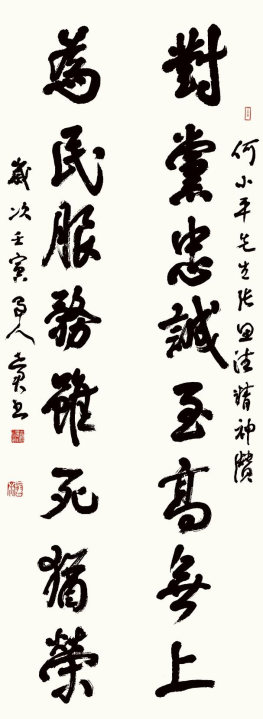 對黨忠誠至高無上
何小平先生張思德精神贊
為民服務雖死猶榮
歲次壬寅